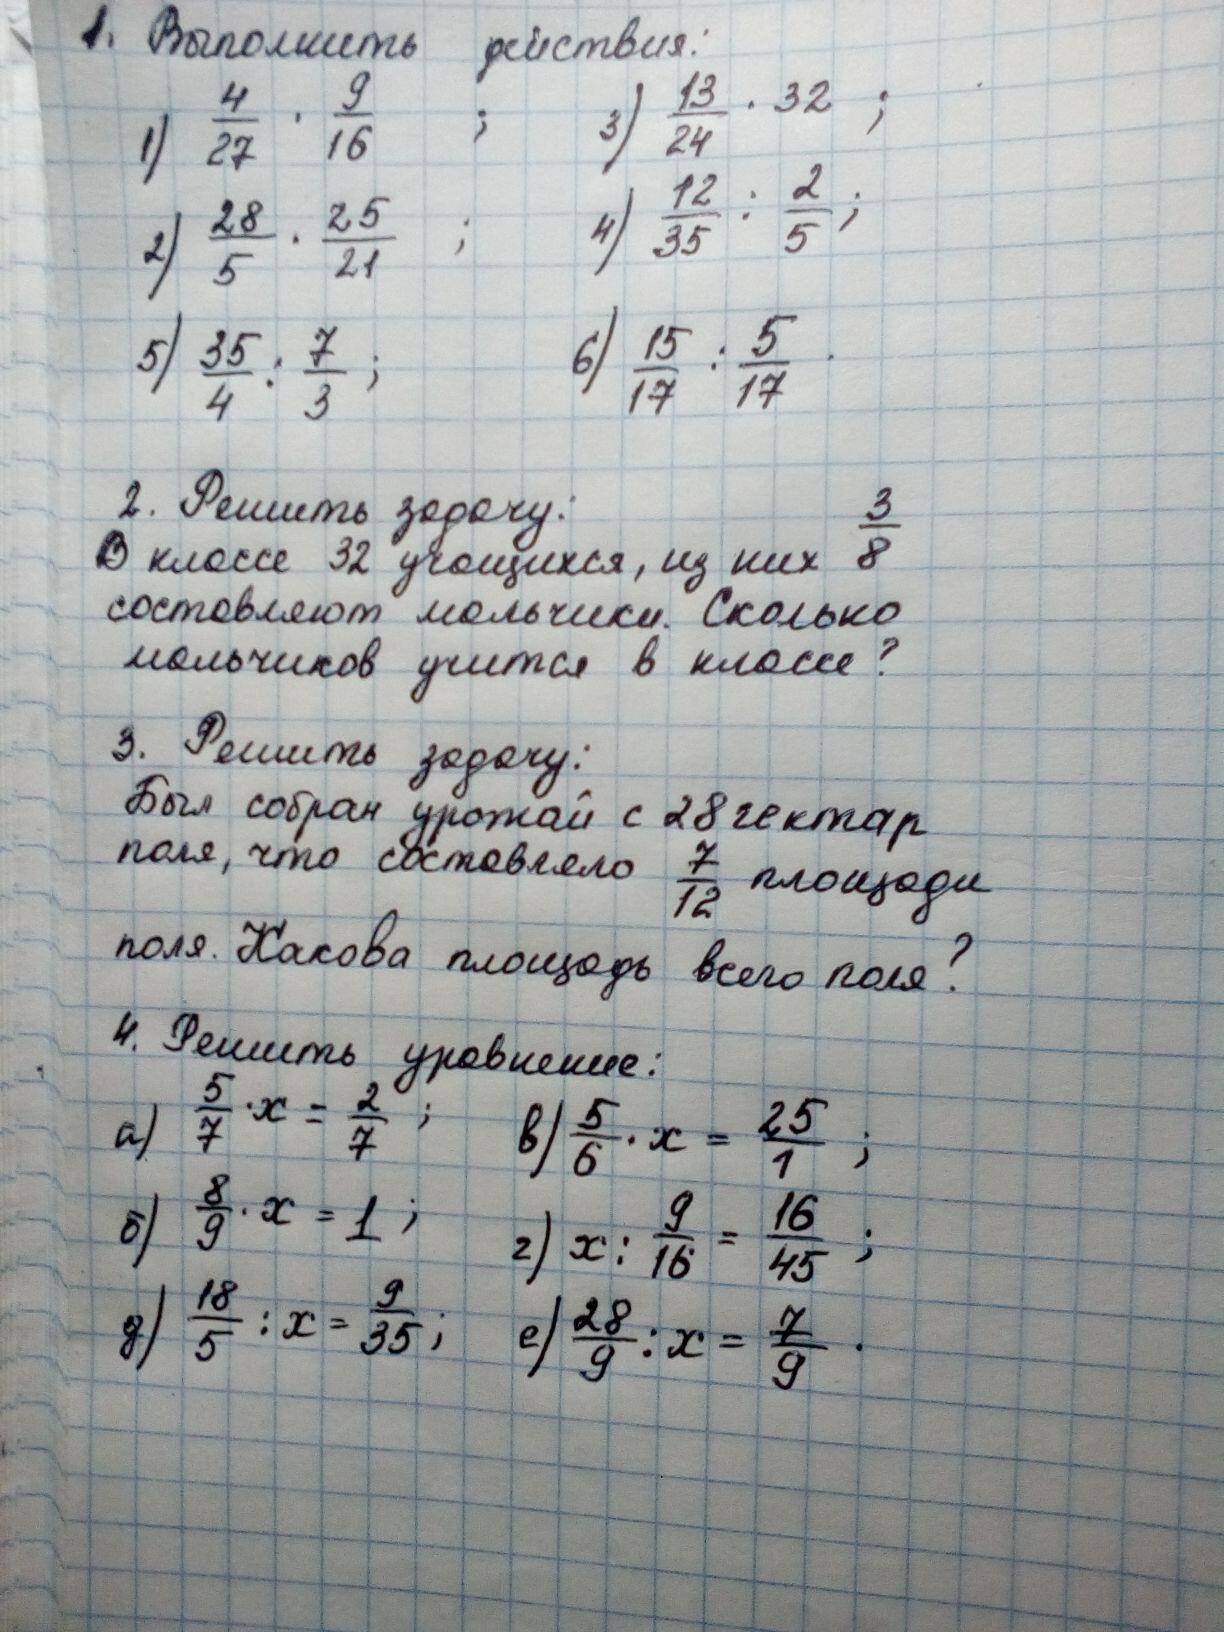 1. Выполнить действия:
1) 4/27 · 9/16 ; 3) 13/24 · 32 ;
2) 28/5 · 25/21 ; 4) 12/35 : 2/5 ;
5) 35/4 : 7/3 ; 6) 15/17 : 5/17 .
2. Решить задачу:
В классе 32 учащихся, из них 3/8
составляют мальчики. Сколько
мальчиков учится в классе?
3. Решить задачу:
Был собран урожай с 28 гектар
поля, что составляло 7/12 площади
поля. Какова площадь всего поля?
4. Решить уравнение:
а) 5/7 · х = 2/7 ; в) 5/6 · х = 25/1 ;
б) 8/9 · х = 1 ; г) х : 9/16 = 16/45 ;
д) 18/5 : х = 9/35 ; е) 28/9 : х = 7/9 .